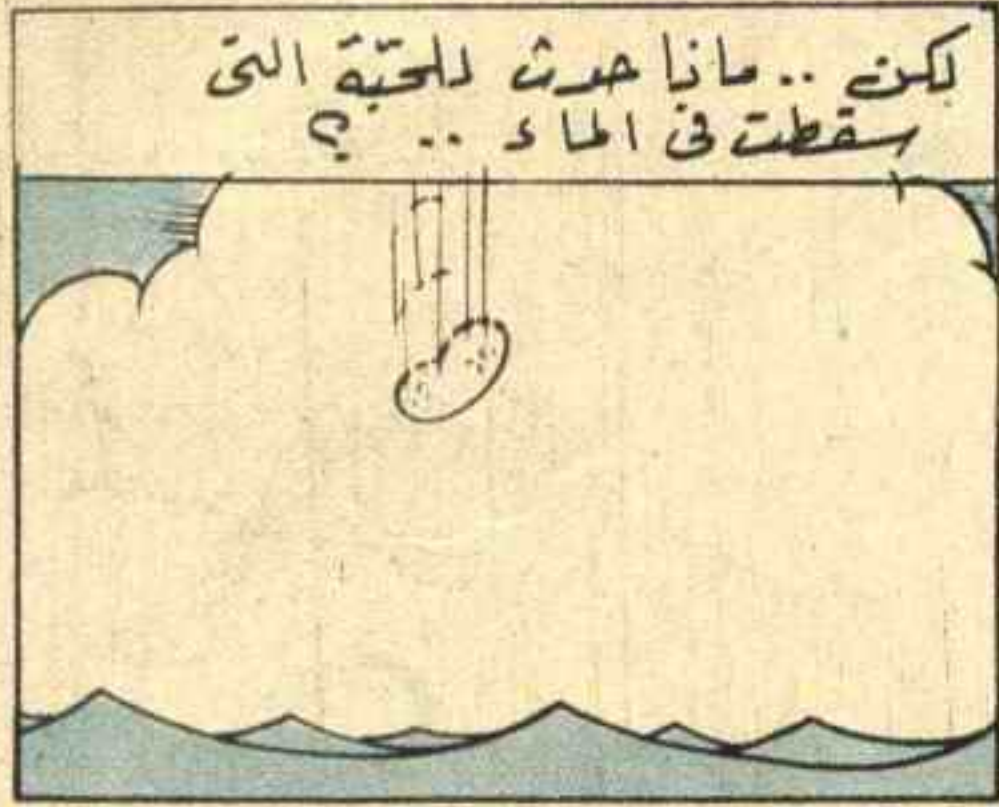 لكن .. ماذا حدث للحبّة التى
سقطت فى الماء .. ؟